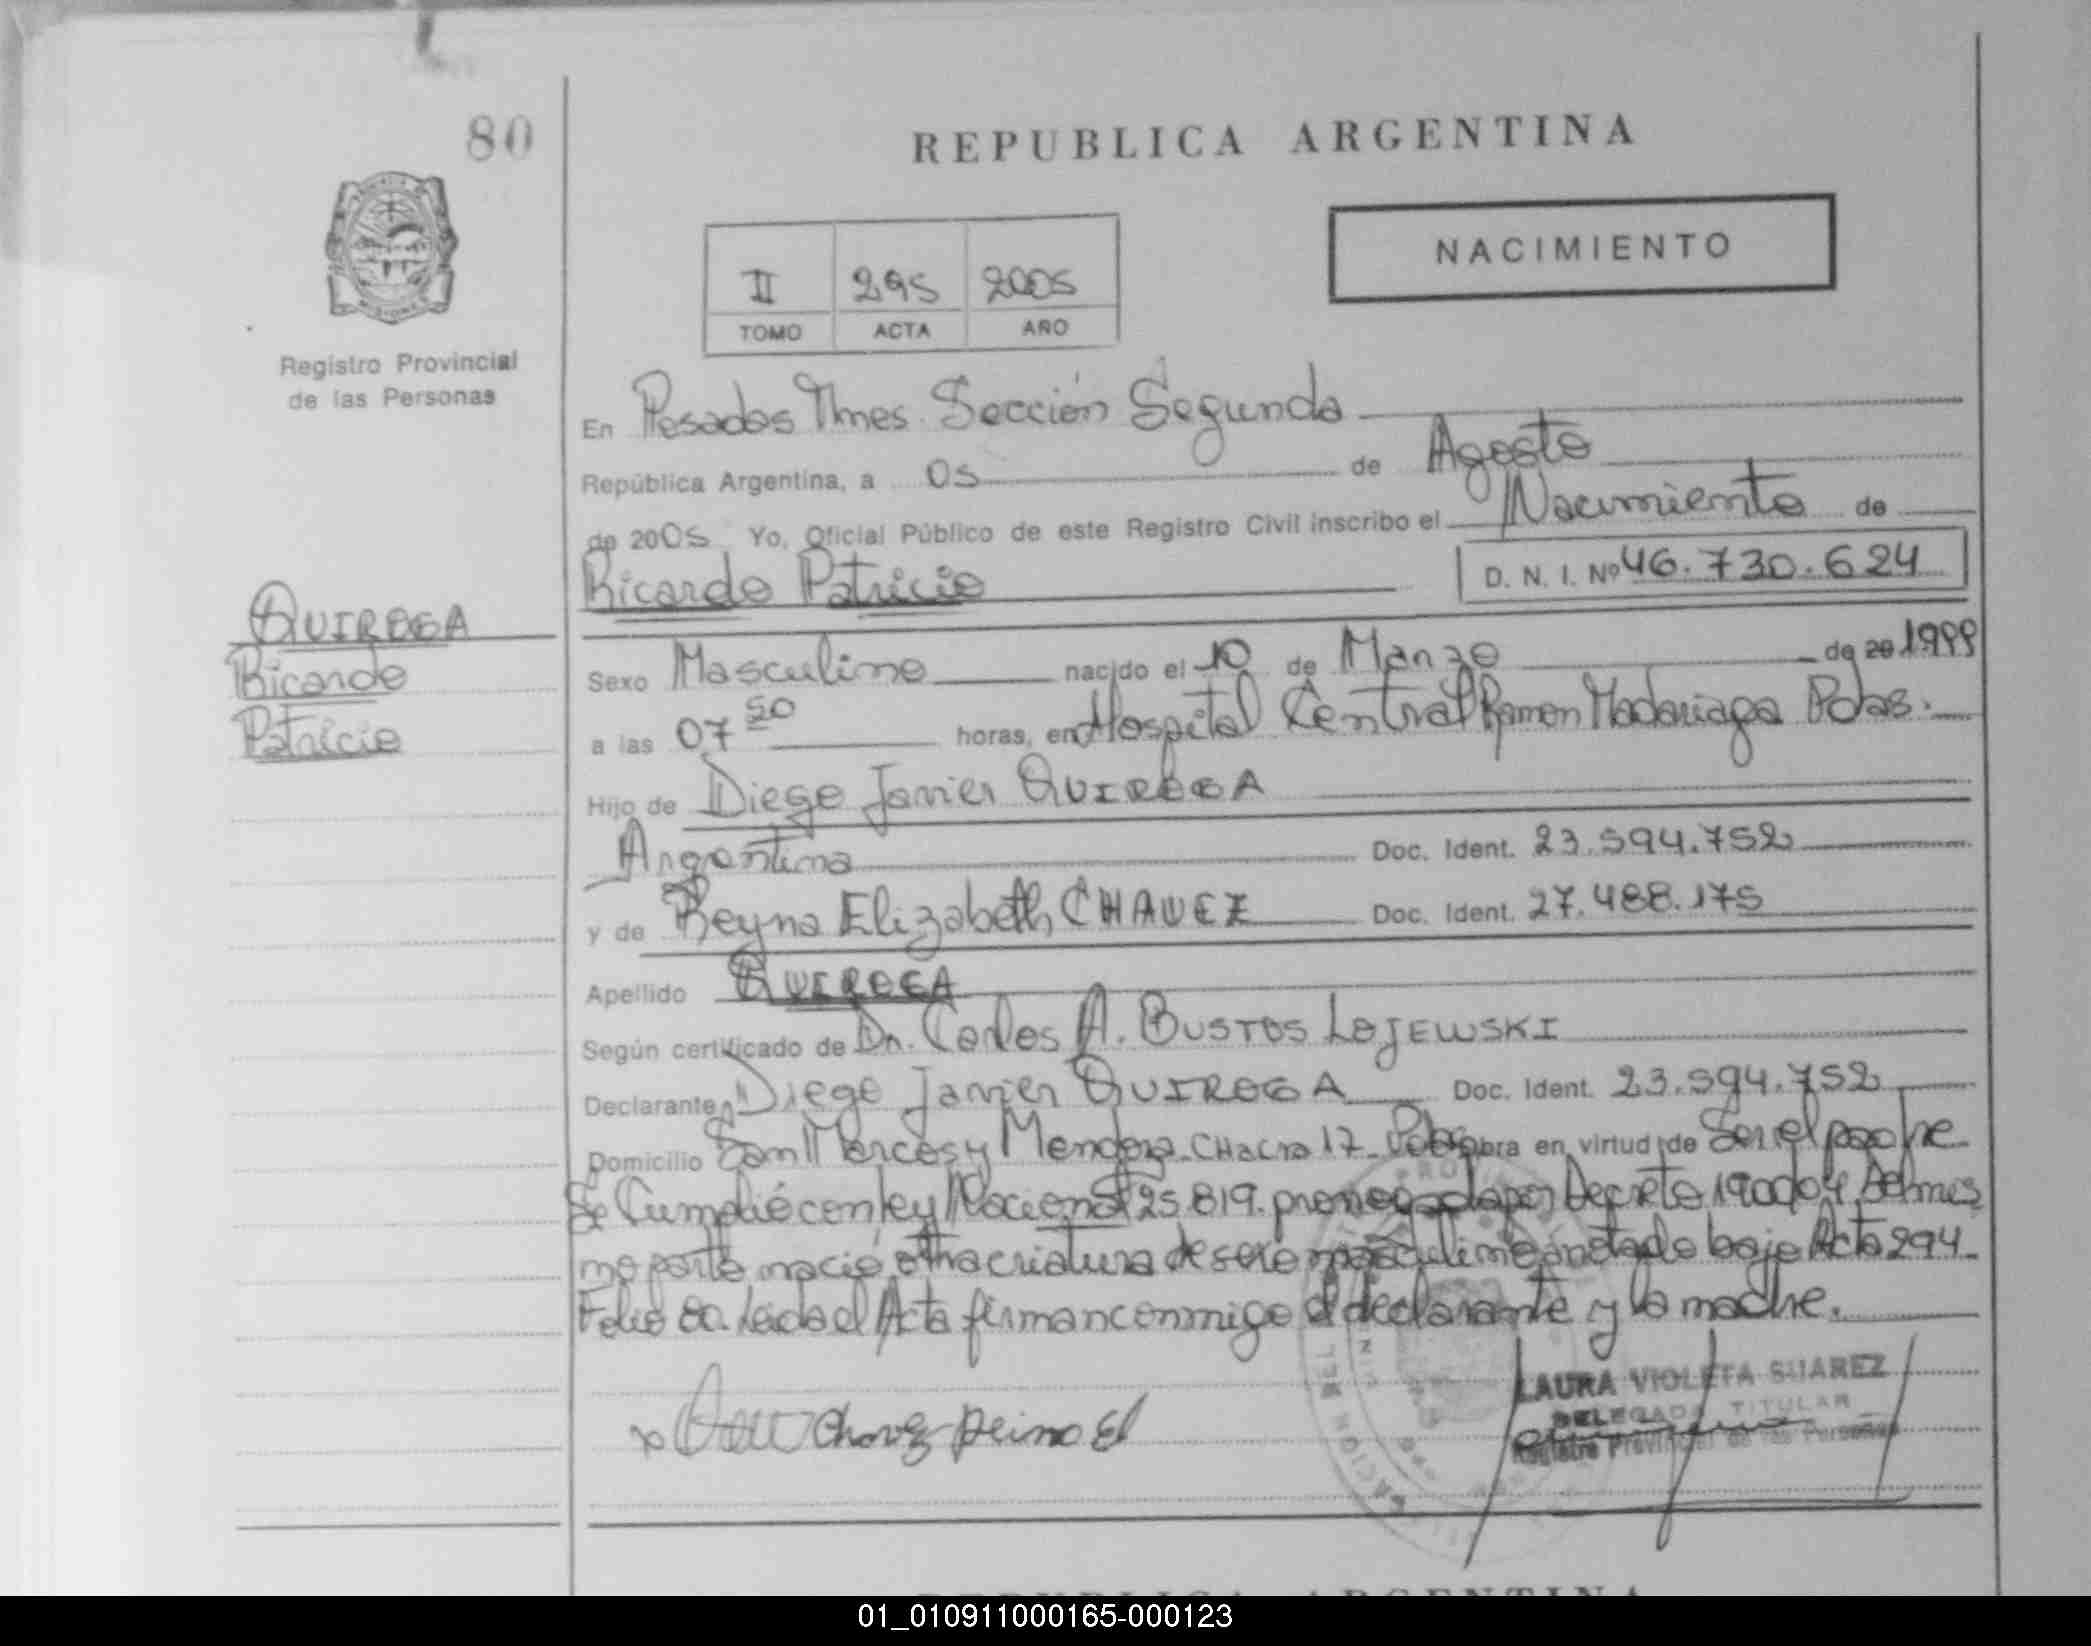 80
REPUBLICA ARGENTINA
NACIMIENTO
II 295 2005
TOMO ACTA AÑO
Registro Provincial
de las Personas
En Posadas Mnes. Sección Segunda
República Argentina, a 05 de Agosto
de 2005 Yo, Oficial Público de este Registro Civil inscribo el Nacimiento de
Ricardo Patricio D. N. I. Nº 46.730.624
QUIROGA
Ricardo
Patricio
Sexo Masculino nacido el 10 de Marzo de 20 1999
a las 07 50 horas, en Hospital Central Ramon Madariaga Pdas.
Hijo de Diego Javier QUIROGA
Argentina Doc. Ident. 23.594.752
y de Reyna Elizabeth CHAVEZ Doc. Ident. 27.488.175
Apellido QUIROGA
Según certificado de Dr. Carlos A. BUSTOS LOJEWSKI
Declarante Diego Javier QUIROGA Doc. Ident. 23.594.752
Domicilio San Marcos y Mendoza - CHacra 17 - Pdas obra en virtud de Ser el padre
Se Cumplió con ley Nacional 25.819. por Decreto 190 del mis
mo parto nació otra criatura de sexo masculino anotado bajo Acta 294-
Folio 80. Leida el Acta firman conmigo el declarante y la madre.
Chavez Reina El
LAURA VIOLETA SUAREZ
DELEGADA TITULAR
Registro Provincial de las Personas
REPUBLICA ARGENTINA
01_010911000165-000123